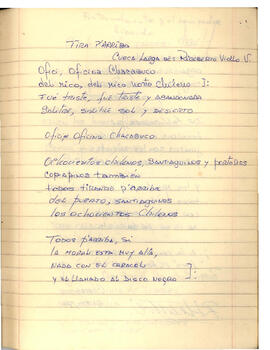 TIRA P'ARRIBA
CUECA LARGA DE: RIGOBERTO V.
OFICI, OFICINA CHACABUCO
DEL RICO, DEL RICO ROTO CHILENO ]:
FUE TRISTE, FUE TRISTE Y ABANDONADA
SALITRE, SALITRE SOL Y DESIERTO
OFICI OFICINA CHACABUCO
OCHOCIENTOS CHILENOS, SANTIAGUINOS Y PORTEÑOS
COPIAPINOS TAMBIÉN
TODOS TIRANDO P'ARRIBA
DEL PUERTO, SANTIAGUINOS
LOS OCHOCIENTOS CHILENOS
TODOS P'ARRIBA, SI
LA MORAL ESTÁ MUY ALTA,
NADA CON EL CARACOL
Y EL LLAMADO AL DISCO NEGRO ]: